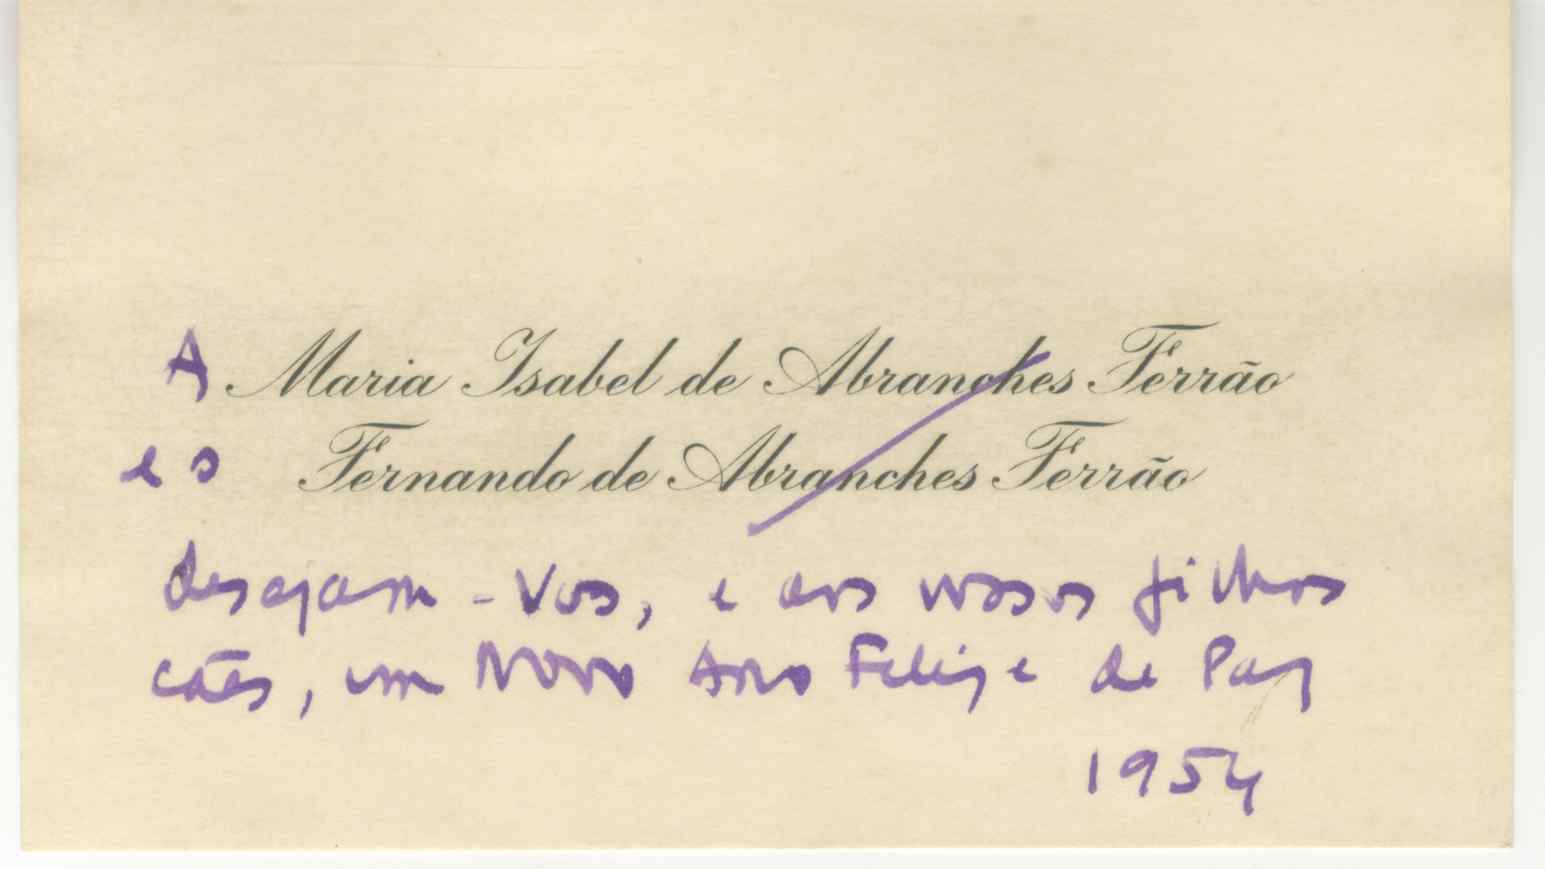 A Maria Isabel de Abranches Ferrão
e o Fernando de Abranches Ferrão
desejam-vos, e aos vossos filhos
cães, um Novo Ano Feliz e de Paz
1954